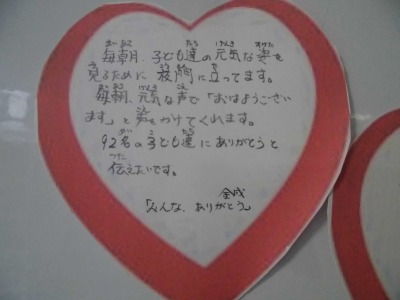 毎朝、子ども達の元気な姿を
見るために 校門に立ってます。
毎朝、元気な声で「おはようござい
ます」と声をかけてくれます。
92名の子ども達にありがとうと
伝えたいです。
「みんな、ありがとう」